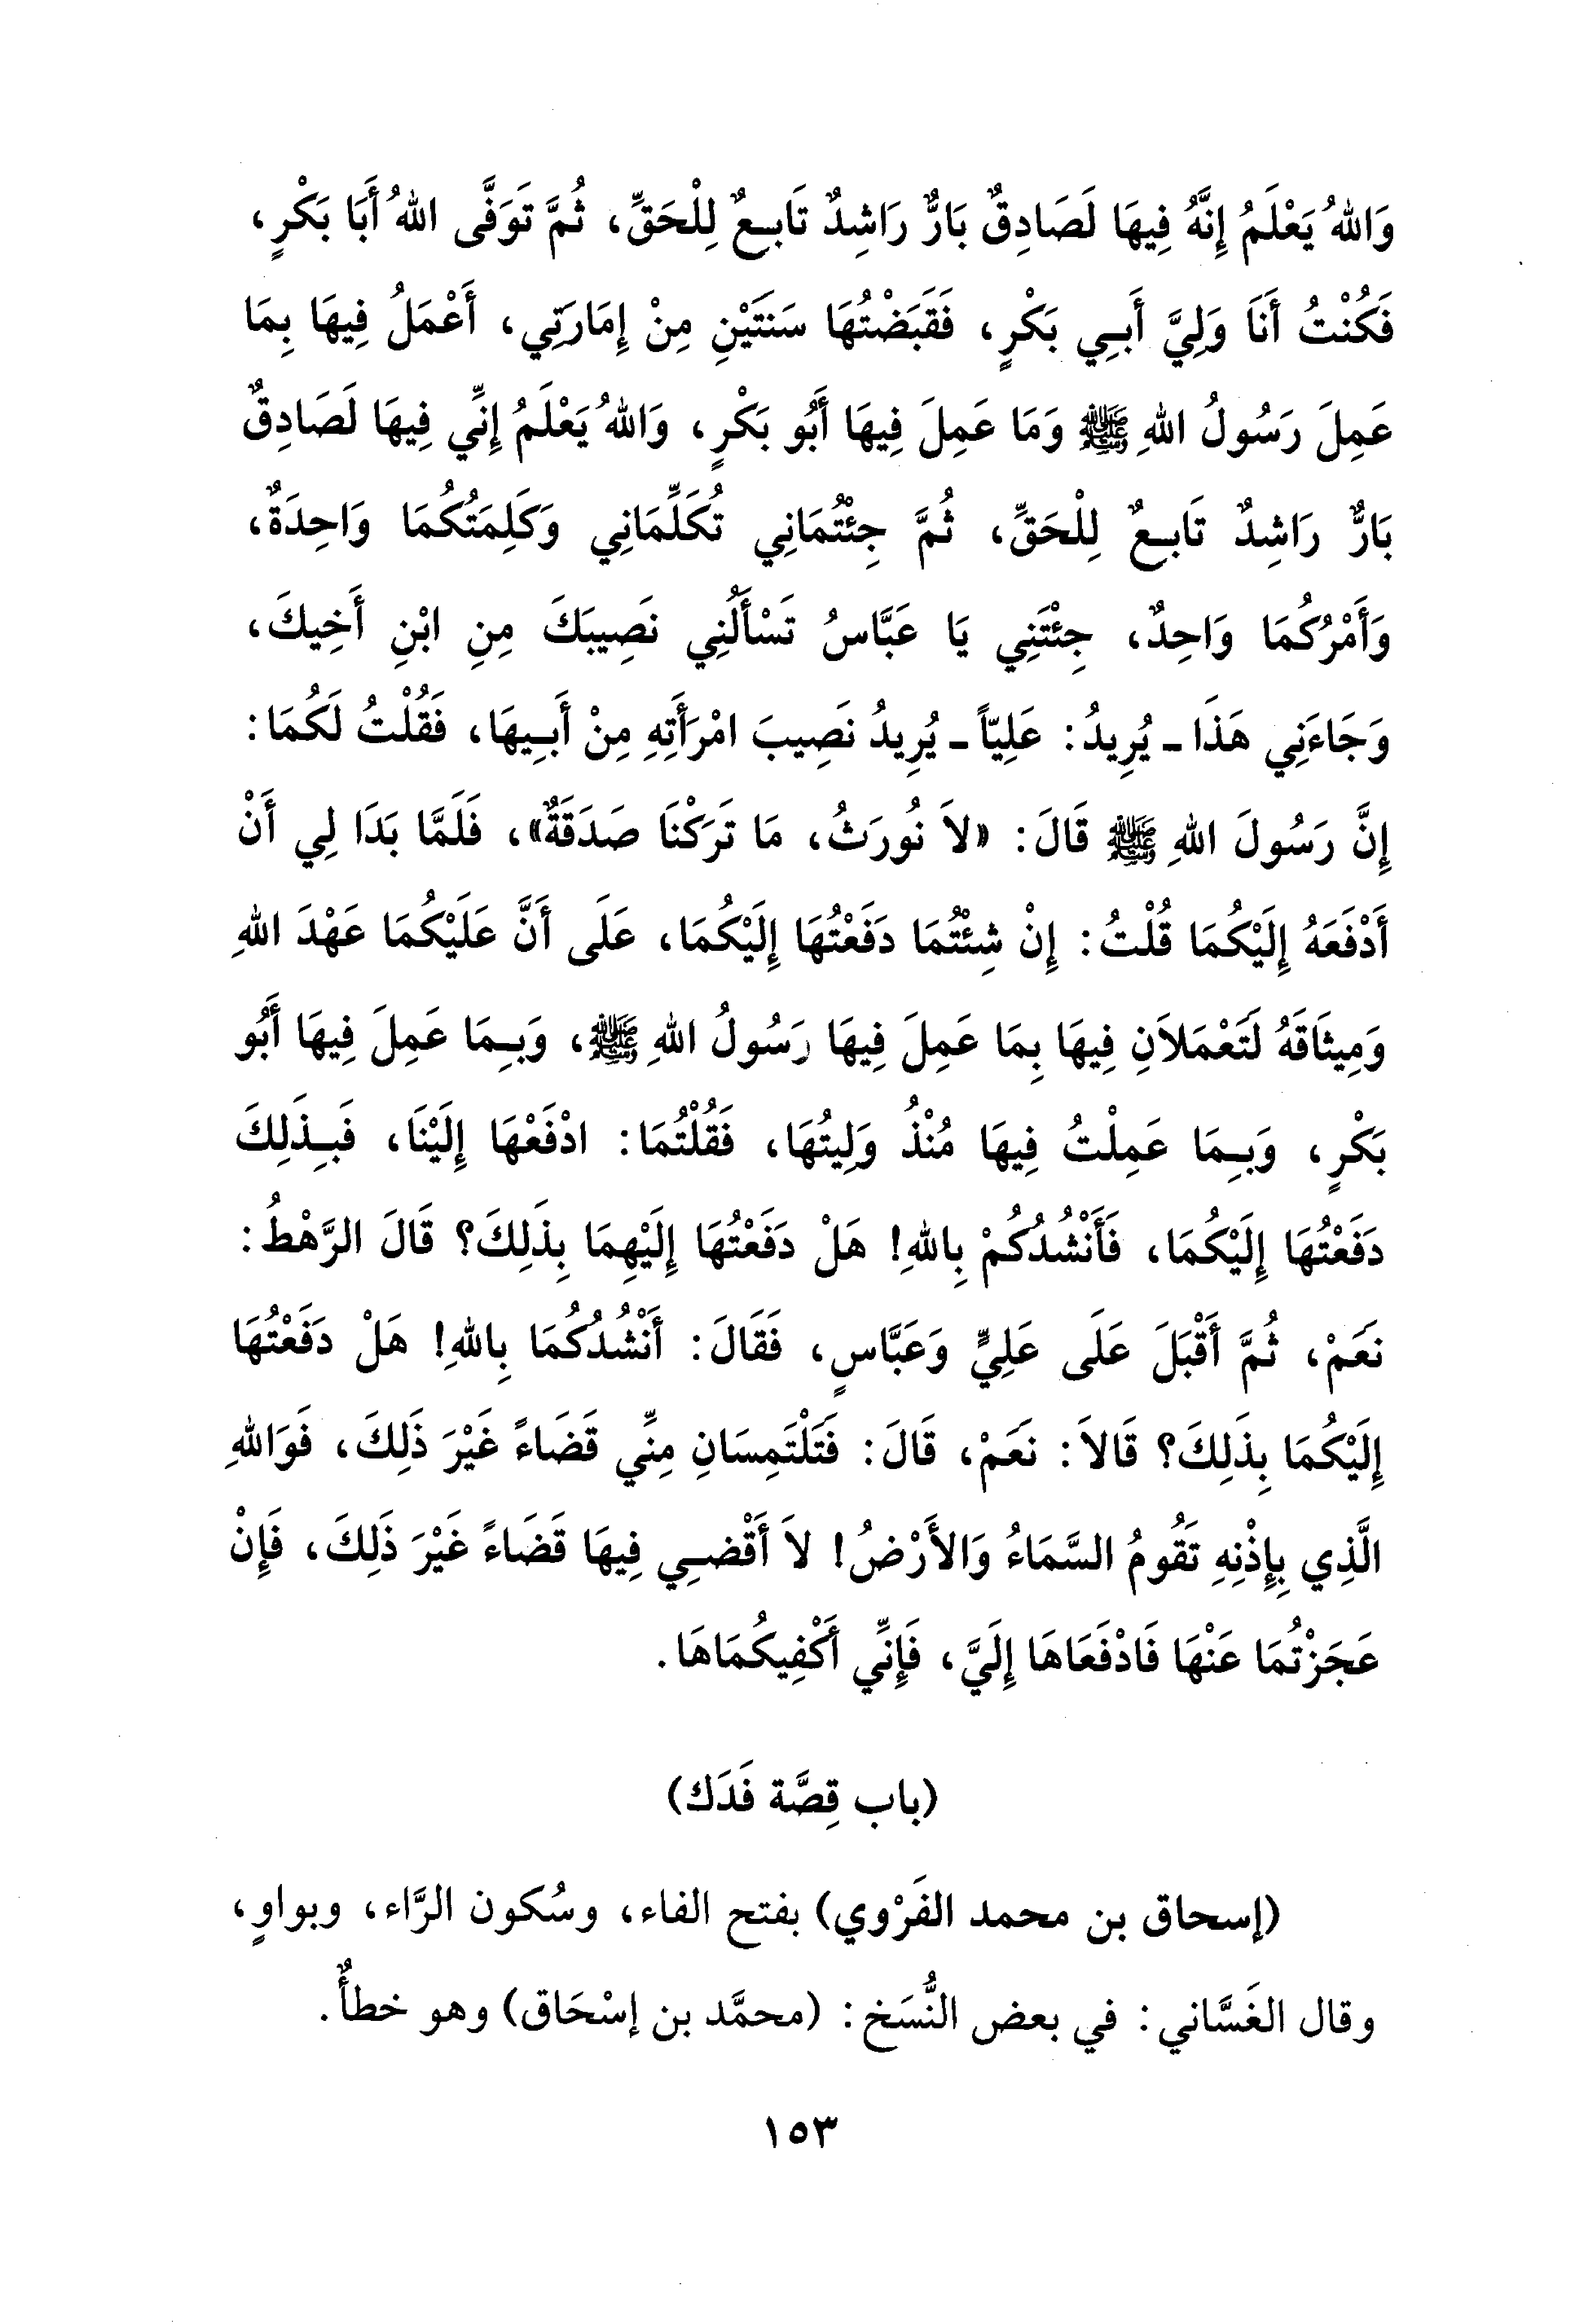 وَاللهُ يَعْلَمُ إِنَّهُ فِيهَا لَصَادِقٌ بَارٌّ رَاشِدٌ تَابِعٌ لِلْحَقِّ، ثُمَّ تَوَفَّى اللهُ أَبَا بَكْرٍ،
فَكُنْتُ أَنَا وَلِيَّ أَبِي بَكْرٍ، فَقَبَضْتُهَا سَنَتَيْنِ مِنْ إِمَارَتِي، أَعْمَلُ فِيهَا بِمَا
عَمِلَ رَسُولُ اللهِ ﷺ وَمَا عَمِلَ فِيهَا أَبُو بَكْرٍ، وَاللهُ يَعْلَمُ إِنِّي فِيهَا لَصَادِقٌ
بَارٌّ رَاشِدٌ تَابِعٌ لِلْحَقِّ، ثُمَّ جِئْتُمَانِي تُكَلِّمَانِي وَكَلِمَتُكُمَا وَاحِدَةٌ،
وَأَمْرُكُمَا وَاحِدٌ، جِئْتَنِي يَا عَبَّاسُ تَسْأَلُنِي نَصِيبَكَ مِنِ ابْنِ أَخِيكَ،
وَجَاءَنِي هَذَا ـ يُرِيدُ: عَلِيّاً ـ يُرِيدُ نَصِيبَ امْرَأَتِهِ مِنْ أَبِيهَا، فَقُلْتُ لَكُمَا:
إِنَّ رَسُولَ اللهِ ﷺ قَالَ: «لاَ نُورَثُ، مَا تَرَكْنَا صَدَقَةٌ»، فَلَمَّا بَدَا لِي أَنْ
أَدْفَعَهُ إِلَيْكُمَا قُلْتُ: إِنْ شِئْتُمَا دَفَعْتُهَا إِلَيْكُمَا، عَلَى أَنَّ عَلَيْكُمَا عَهْدَ اللهِ
وَمِيثَاقَهُ لَتَعْمَلاَنِ فِيهَا بِمَا عَمِلَ فِيهَا رَسُولُ اللهِ ﷺ، وَبِمَا عَمِلَ فِيهَا أَبُو
بَكْرٍ، وَبِمَا عَمِلْتُ فِيهَا مُنْذُ وَلِيتُهَا، فَقُلْتُمَا: ادْفَعْهَا إِلَيْنَا، فَبِذَلِكَ
دَفَعْتُهَا إِلَيْكُمَا، فَأَنْشُدُكُمْ بِاللهِ! هَلْ دَفَعْتُهَا إِلَيْهِمَا بِذَلِكَ؟ قَالَ الرَّهْطُ:
نَعَمْ، ثُمَّ أَقْبَلَ عَلَى عَلِيٍّ وَعَبَّاسٍ، فَقَالَ: أَنْشُدُكُمَا بِاللهِ! هَلْ دَفَعْتُهَا
إِلَيْكُمَا بِذَلِكَ؟ قَالاَ: نَعَمْ، قَالَ: فَتَلْتَمِسَانِ مِنِّي قَضَاءً غَيْرَ ذَلِكَ، فَوَاللهِ
الَّذِي بِإِذْنِهِ تَقُومُ السَّمَاءُ وَالأَرْضُ! لاَ أَقْضِي فِيهَا قَضَاءً غَيْرَ ذَلِكَ، فَإِنْ
عَجَزْتُمَا عَنْهَا فَادْفَعَاهَا إِلَيَّ، فَإِنِّي أَكْفِيكُمَاهَا.
(باب قِصَّة فَدَك)
(إسحاق بن محمد الفَرْوي) بفتح الفاء، وسُكون الرَّاء، وبواوٍ،
وقال الغَسَّاني: في بعض النُّسَخ: (محمَّد بن إسْحَاق) وهو خطأٌ.
١٥٣